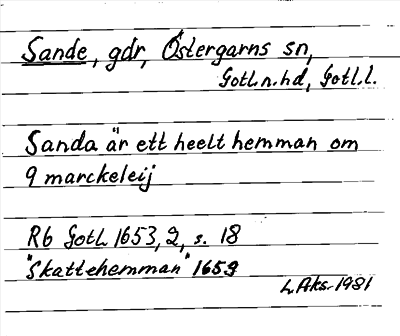 Sande, gdr, Östergarns sn,
Gotl.n.hd, Gotl.l.
Sanda är ett heelt hemman om
9 marckeleij
Rb Gotl 1653, 2, s. 18
"Skattehemman" 1653
L. Aks. 1981